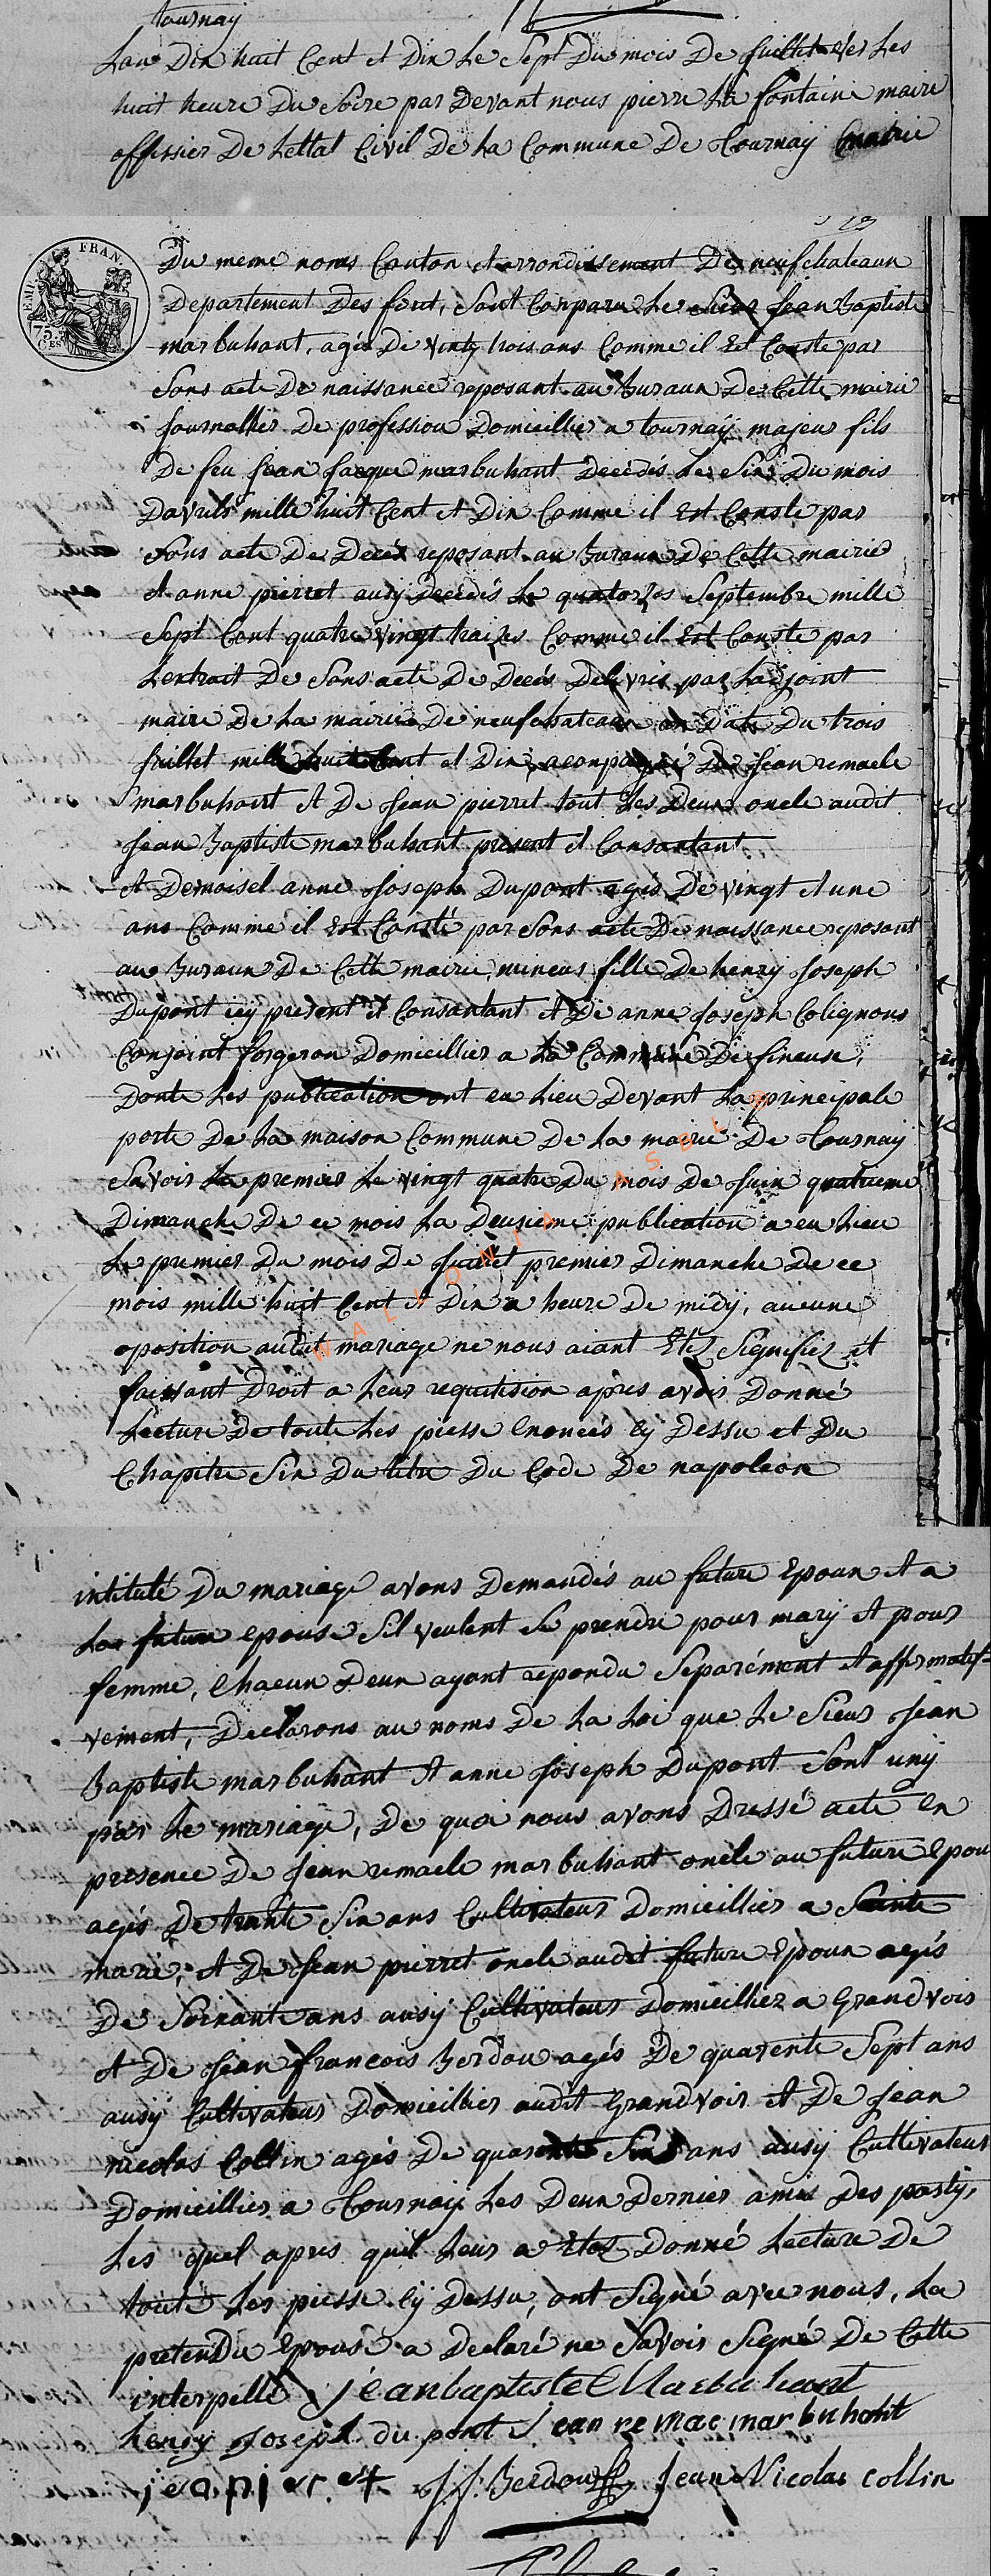 tournay
Lan Dix huit Cent et Dix Le Sept Du mois De Juillet vers Les
huit heure Du Soire par Devant nous pierre La fontaine maire
offissier De Lettat Civil De La Commune De Tournay mairie
Du meme noms Canton et arrondissement De neufchateaux
Departement Des foret, Sont Conparu Le Sieur Jean Baptiste
marbuhant, agés De vintg trois ans Comme il Est Conste par
Sons acte De naissance reposant au buraux De Cette mairie
Journallier De profession Domicillier a tournay majeur fils
De feu Jean Jacque marbuhant Decedés Le Six Du mois
Davrils mille huit Cent et Dix Comme il Est Conste par
Sons acte De Decés reposant au buraux De Cette mairie
et anne pierret ausy Decedés Le quatorzes Septembre mille
Sept Cent quatre vingt traizes Comme il Est Conste par
Lextrait De Sons acte De Decés Delivris par Ladjoint
maire De La mairie De neufchateau en Date Du trois
Juillet mille huit Cent et Dix aconpagné De Jean remacle
marbuhant et De Jean pierret tout Les Deux oncle audit
Jean Baptiste marbuhant present et Consantant
et Demoisel anne Joseph Dupont agés De vingt et une
ans Comme il Est Consté par Sons acte De naissance reposant
aux Buraux De Cette mairie, mineur fille De henry Joseph
Dupont icy present et Consantant et De anne Joseph Colignons
Conjoint forgeron Domicillier a La Commune De fineuse,
Donte Les publication ont eu Lieu Devant La principale
porte De La maison Commune De La mairie De Tournay
Savoir La premier Le vingt quatre Du mois De Juin quatrieme
Dimanche De ce mois La Deusieme publication a eu Lieu
Le premier Du mois De Juillet premier Dimanche De ce
mois mille huit Cent et Dix a heure De midy, aucune
oposition audit mariage ne nous aiant Etez Signifiez et
faissant Droit a Leur requitision après avoir Donné
Lecture De toute Les piesse Enoncés Cy Dessu et Du
Chapitre Six Du titre Du Code De napoleon
intitulé Du mariage avons Demandés au future Epoux et a
La future epouse Sil veulent Se prendre pour mary et pour
femme, Chacun Deux ayant repondu Separément et affirmatif-
vement, Declarons au noms De La Loi que Le Sieur Jean
Baptiste marbuhant et anne Joseph Dupont Sont unij
par Le mariage, De quoi nous avons Dressé acte En
presence De Jean remacle marbuhant oncle au future Epou
agés De trante Six ans Cultivateur Domicillier a Sainte
marie, et De Jean pierret oncle audit future Epoux agés
De Soixante ans ausy Cultivateur Domicilliez a Grandvoir
et De Jean francois Berdou agés De quarente Sept ans
ausy Cultivateur Domicillier audit Grandvoir et De Jean
nicolas Collin agés De quarente Six ans ausy Cultivateur
Domicillier a Tournay Les Deux Dernier amis Des party,
Les quel apres quil Leur a Etez Donné Lecture De
toute Les piesse Cy Dessu, ont Signé avec nous, La
pretendu Epouse a Declaré ne Savoir Signé De Cette
interpellé jéanbaptiste Marbuhant
henry Joseph du pont Jean remac marbuhant
jeanpierret J. f. Berdouff Jean Nicolas collin
WALLONIA ASBL